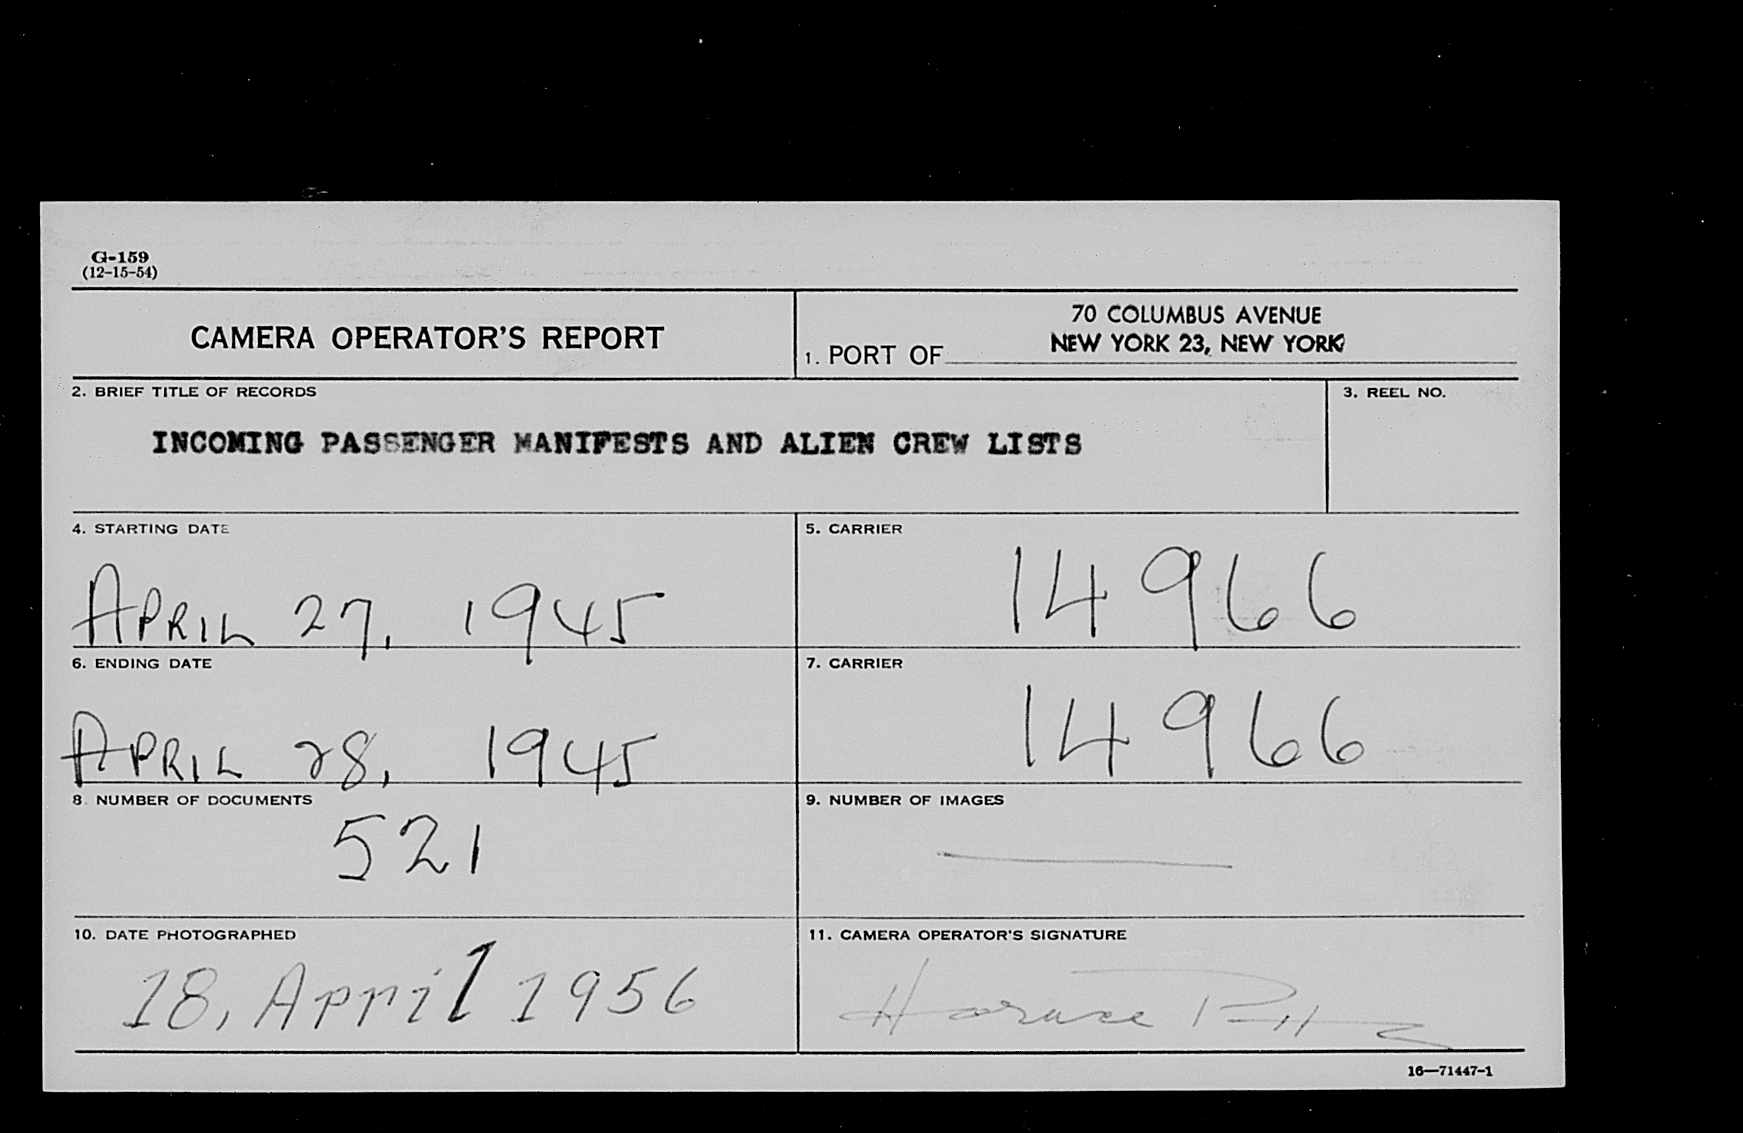 G-159
(12-15-54)
CAMERA OPERATOR'S REPORT
70 COLUMBUS AVENUE
1. PORT OF NEW YORK 23, NEW YORK
2. BRIEF TITLE OF RECORDS
3. REEL NO.
INCOMING PASSENGER MANIFESTS AND ALIEN CREW LISTS
4. STARTING DATE
5. CARRIER
APRIL 27, 1945
14966
6. ENDING DATE
7. CARRIER
APRIL 28, 1945
14966
8. NUMBER OF DOCUMENTS
9. NUMBER OF IMAGES
521
10. DATE PHOTOGRAPHED
11. CAMERA OPERATOR'S SIGNATURE
18, April 1956
Horace
16—71447-1